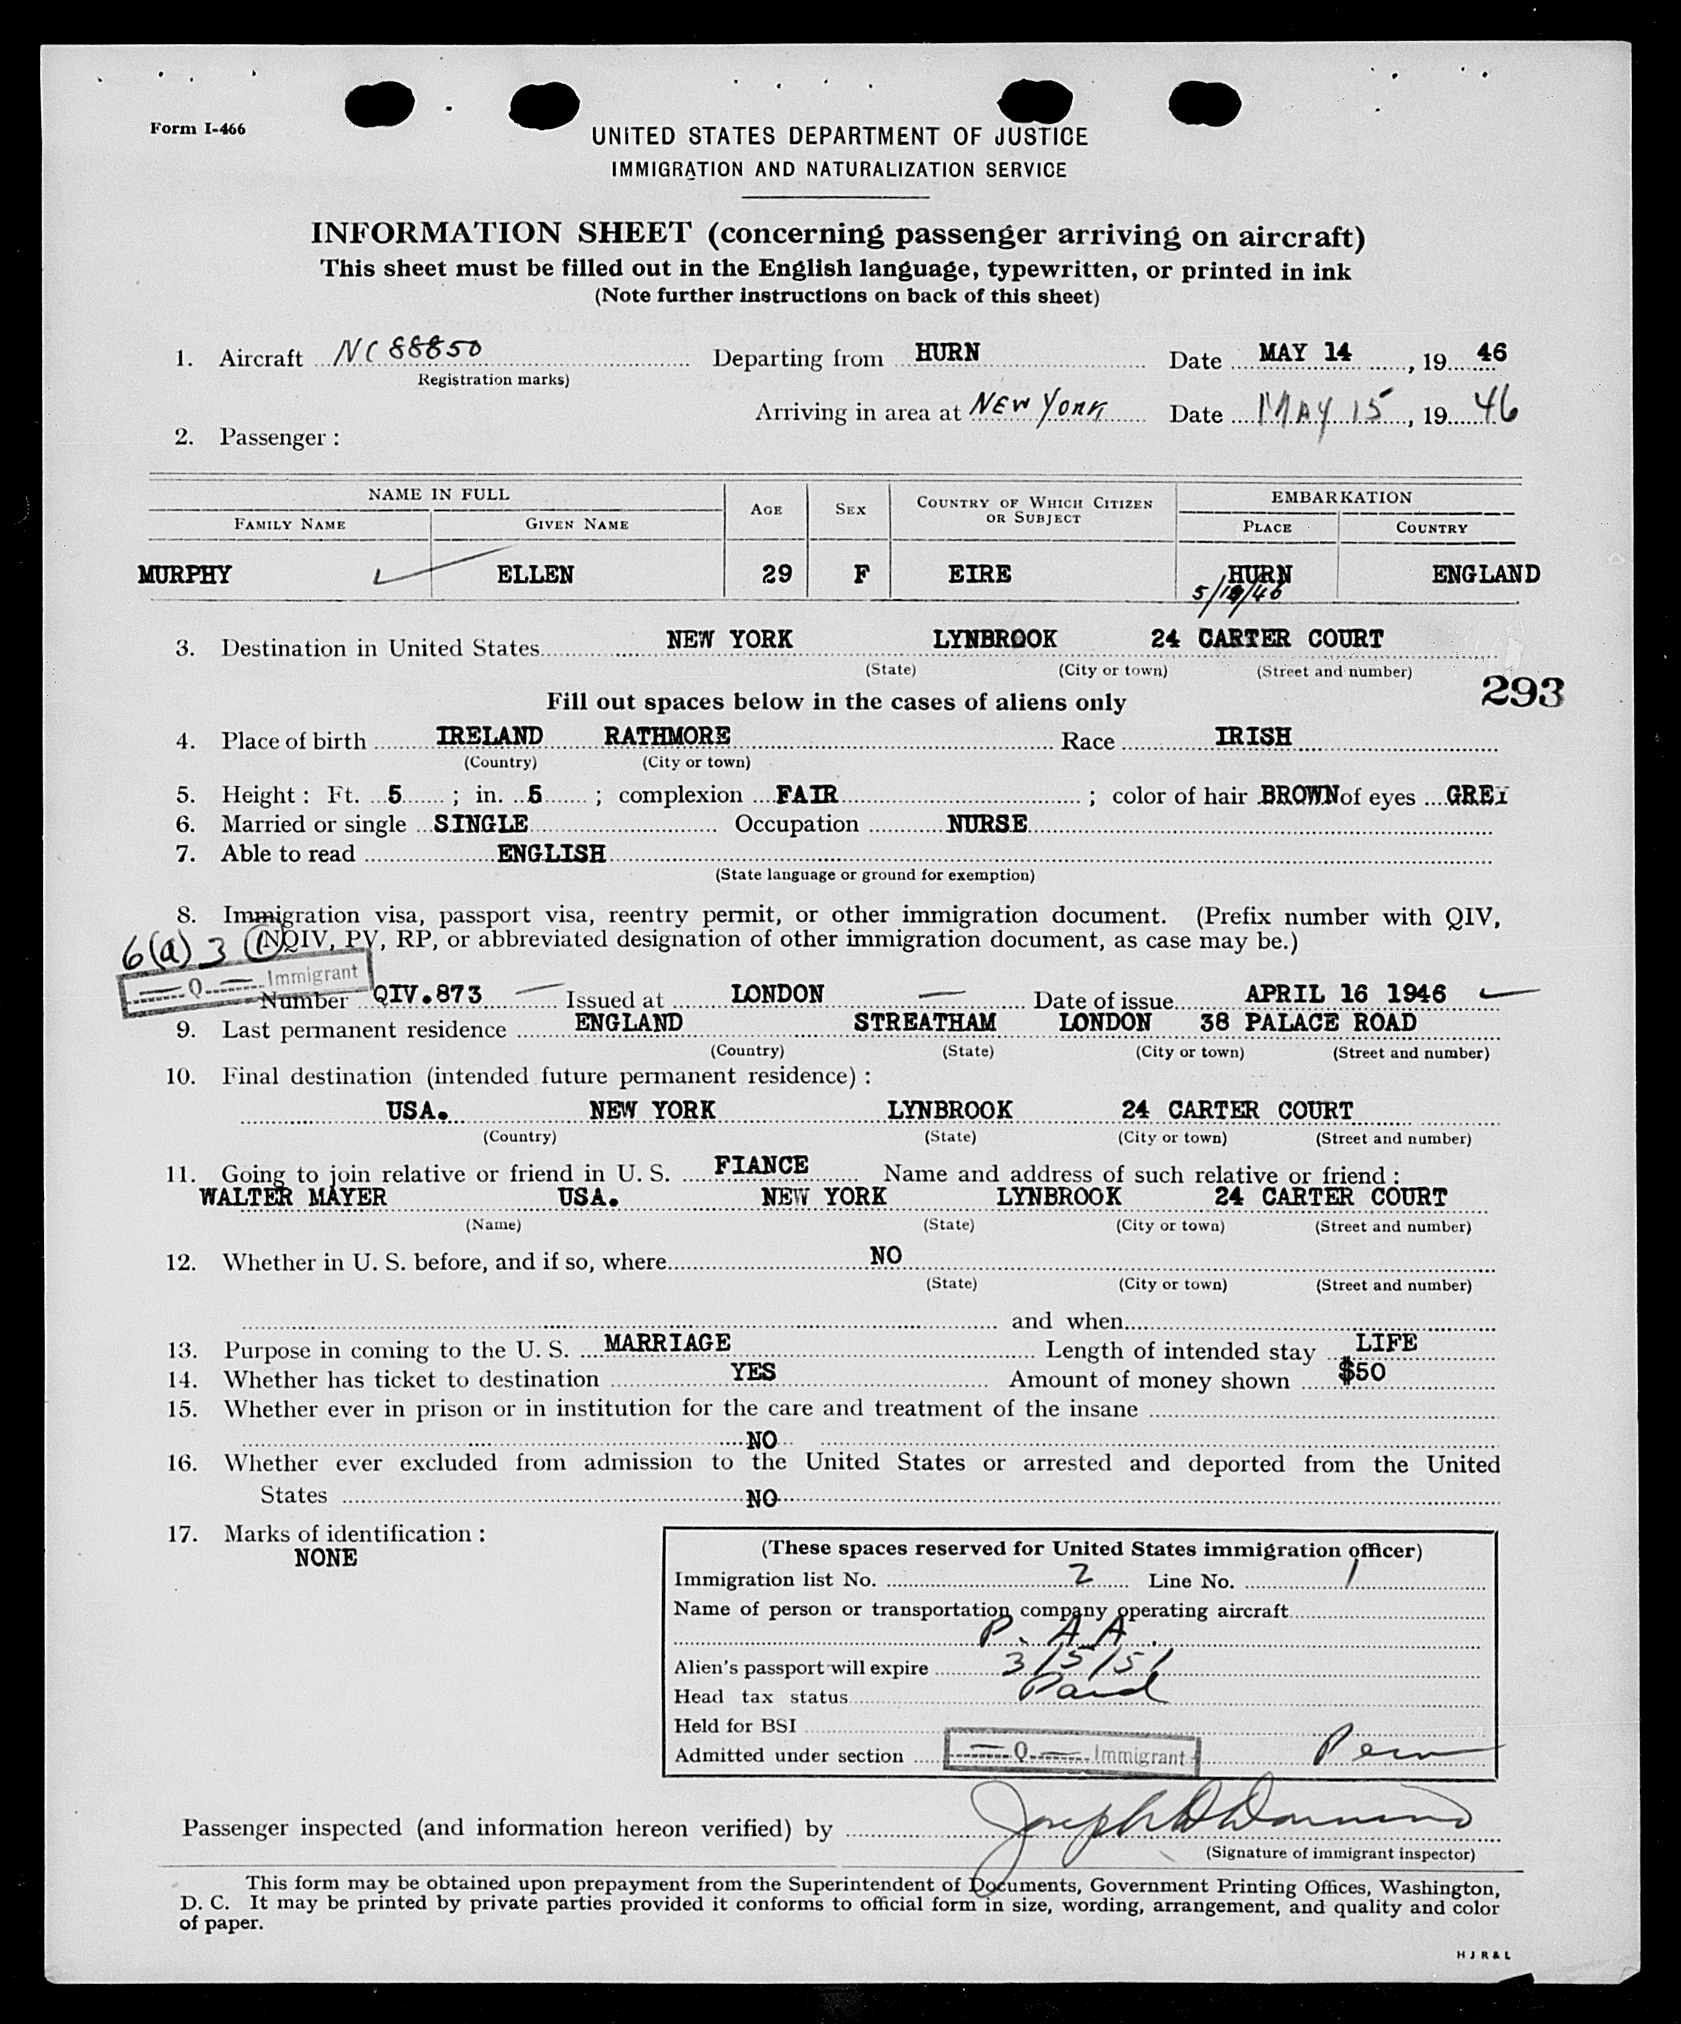 Form I-466
UNITED STATES DEPARTMENT OF JUSTICE
IMMIGRATION AND NATURALIZATION SERVICE
INFORMATION SHEET (concerning passenger arriving on aircraft)
This sheet must be filled out in the English language, typewritten, or printed in ink
(Note further instructions on back of this sheet)
1. Aircraft NC 88850 Departing from HURN Date MAY 14, 19 46
Registration marks)
Arriving in area at NEW YORK Date MAY 15, 19 46
2. Passenger :
NAME IN FULL AGE SEX COUNTRY OF WHICH CITIZEN OR SUBJECT EMBARKATION
FAMILY NAME GIVEN NAME PLACE COUNTRY
MURPHY ELLEN 29 F EIRE HURN ENGLAND
3. Destination in United States NEW YORK LYNBROOK 24 CARTER COURT
(State) (City or town) (Street and number)
293
Fill out spaces below in the cases of aliens only
4. Place of birth IRELAND RATHMORE Race IRISH
(Country) (City or town)
5. Height : Ft. 5 ; in. 5 ; complexion FAIR ; color of hair BROWN of eyes GREY
6. Married or single SINGLE Occupation NURSE
7. Able to read ENGLISH
(State language or ground for exemption)
8. Immigration visa, passport visa, reentry permit, or other immigration document. (Prefix number with QIV,
6(a) 3 NQIV, PV, RP, or abbreviated designation of other immigration document, as case may be.)
Q Immigrant
Number QIV.873 Issued at LONDON Date of issue APRIL 16 1946
9. Last permanent residence ENGLAND STREATHAM LONDON 38 PALACE ROAD
(Country) (State) (City or town) (Street and number)
10. Final destination (intended future permanent residence) :
USA. NEW YORK LYNBROOK 24 CARTER COURT
(Country) (State) (City or town) (Street and number)
11. Going to join relative or friend in U. S. FIANCE Name and address of such relative or friend :
WALTER MAYER USA. NEW YORK LYNBROOK 24 CARTER COURT
(Name) (State) (City or town) (Street and number)
12. Whether in U. S. before, and if so, where NO
(State) (City or town) (Street and number)
and when
13. Purpose in coming to the U. S. MARRIAGE Length of intended stay LIFE
14. Whether has ticket to destination YES Amount of money shown $50
15. Whether ever in prison or in institution for the care and treatment of the insane
NO
16. Whether ever excluded from admission to the United States or arrested and deported from the United
States NO
17. Marks of identification :
NONE
(These spaces reserved for United States immigration officer)
Immigration list No. 2 Line No. 1
Name of person or transportation company operating aircraft
P. A A.
Alien's passport will expire 3/5/51
Head tax status Paid
Held for BSI
Admitted under section Q Immigrant Perm
Passenger inspected (and information hereon verified) by Joseph
(Signature of immigrant inspector)
This form may be obtained upon prepayment from the Superintendent of Documents, Government Printing Offices, Washington,
D. C. It may be printed by private parties provided it conforms to official form in size, wording, arrangement, and quality and color
of paper.
H J R & L